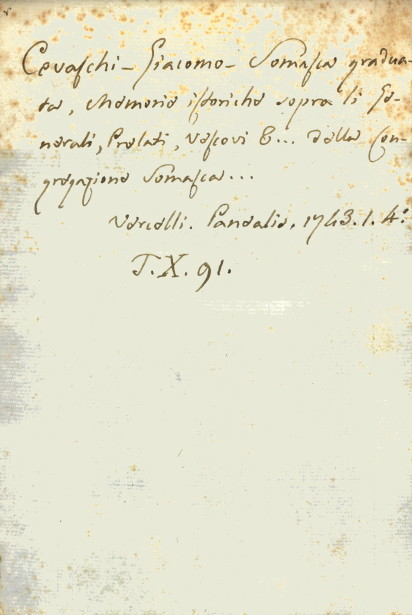 Cevaschi - Giacomo - Somasca gradua-
ta, Memorie istoriche sopra li Ge-
nerali, Prelati, Vescovi &... della Con-
gregazione Somasca...
Vercelli. Panealis, 1743. 1. 4.º
T. X. 91.